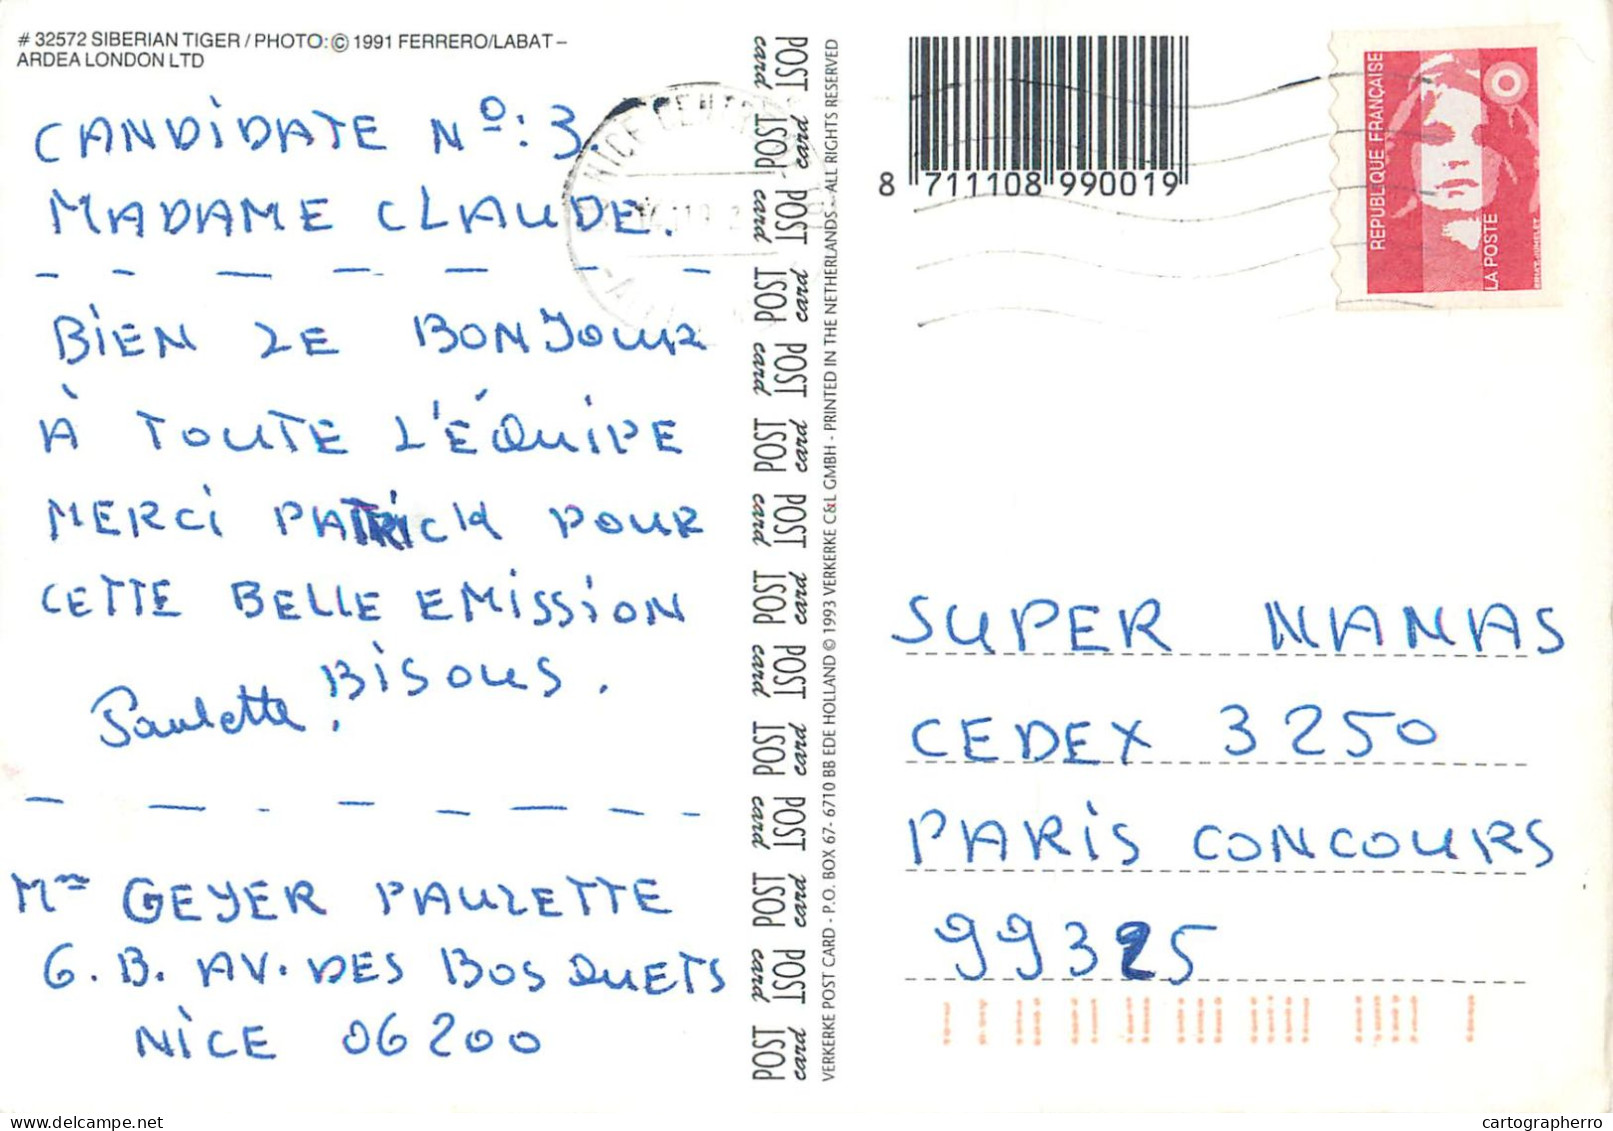 # 32572 SIBERIAN TIGER / PHOTO: © 1991 FERRERO/LABAT –
ARDEA LONDON LTD
CANDIDATE Nº: 3.
MADAME CLAUDE.
BIEN LE BONJOUR
À TOUTE L'ÉQUIPE
MERCI PATRICK POUR
CETTE BELLE EMISSION
BISOUS.
Paulette.
Mme GEYER PAULETTE
6. B. AV. DES BOSQUETS
NICE 06200
POST card POST card POST card POST card POST card POST card POST card POST card POST card POST card POST card POST card POST card POST card
VERKERKE POST CARD - P.O. BOX 67- 6710 BB EDE HOLLAND © 1993 VERKERKE C&L GMBH - PRINTED IN THE NETHERLANDS - ALL RIGHTS RESERVED
NICE
8 711108 990019
REPUBLIQUE FRANÇAISE
LA POSTE
SUPER NANAS
CEDEX 3250
PARIS CONCOURS
99325
cartographerro